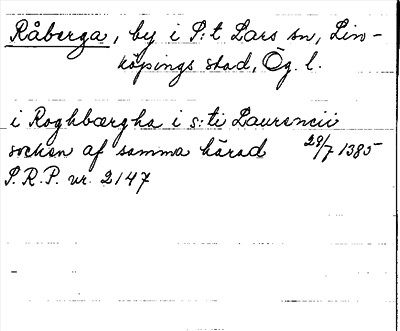 Råberga, by i S:t Lars sn, Lin-
köpings stad, Ög. l.
i Roghbærgha i s:ti Laurencii
socken af samma härad 29/7 1385
S.R.P. nr. 2147